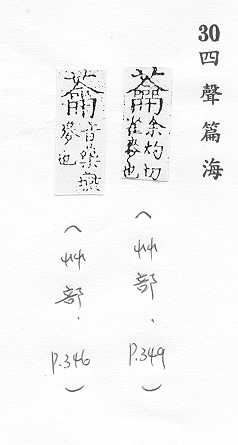 30 四聲篇海
蘥 余灼切雀麥也
(艸部. P.349)
蘥 音藥燕麥也
(艸部. P.346)